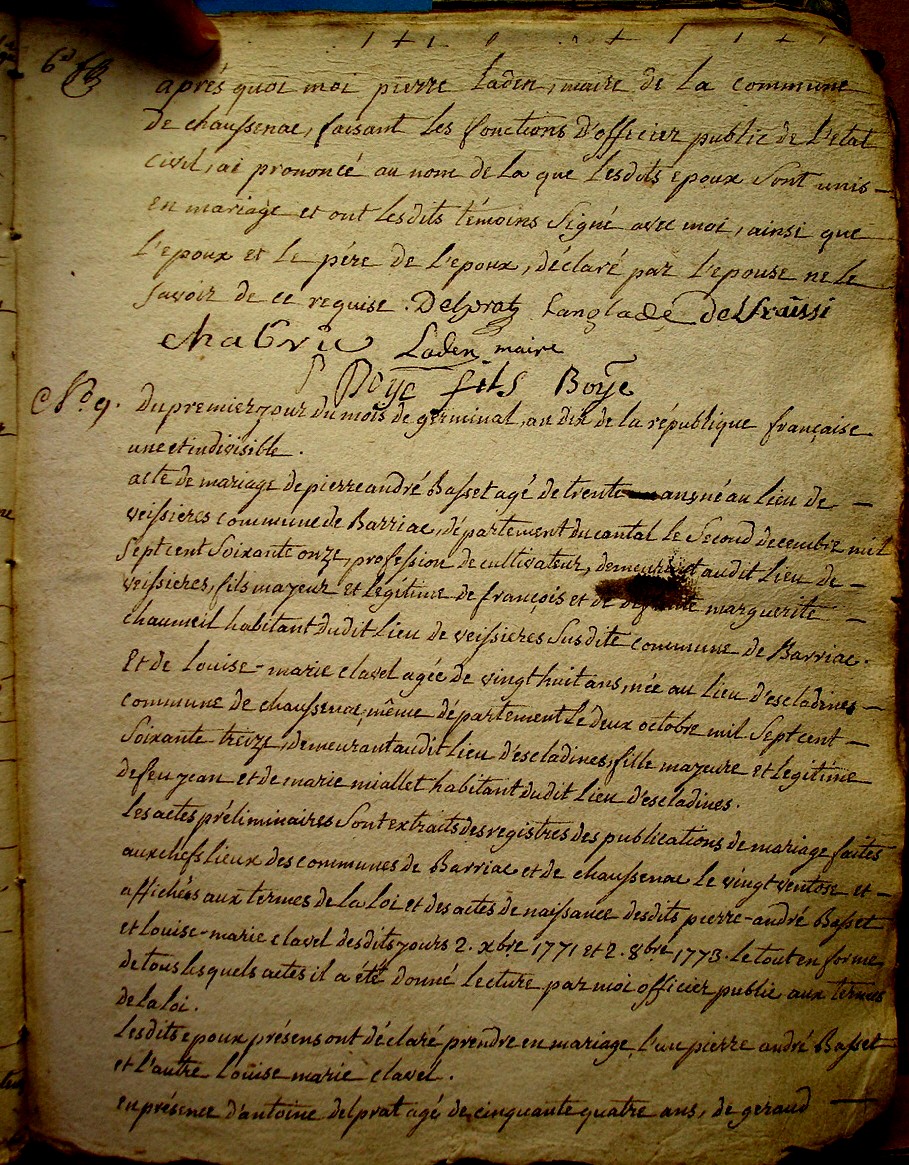 6e
après quoi moi pierre Laden, maire de la commune
de chaussenac, faisant les fonctions D'officier public de L'etat
civil, ai prononcé au nom de La que Lesdits epoux Sont unis
en mariage et ont Lesdits témoins Signé avec moi, ainsi que
L'epoux et Le pére de L'epoux, déclaré par L'epouse ne le
Savoir de ce requise. Delprat Langlade delfraissi
chabrie Laden maire
Boye fils Boye
No. 9. Du premier jour du mois de germinal, an dix de la république française
une et indivisible.
acte de mariage de pierre andré Basset agé de trente ans, né au Lieu de
veissieres commune de Barriac, département du cantal le Second decembre mil
Sept cent Soixante onze, profession de cultivateur, demeurant audit Lieu de
veissieres, fils mayeur et Légitime de françois et de defunte marguerite
chaumeil habitant dudit Lieu de veissieres Susdite commune de Barriac.
Et de Louise-marie clavel agée de vingt huit ans, née au Lieu d'escladines
commune de chaussenac, même département Le deux octobre mil Sept cent
Soixante treize, demeurant audit Lieu d'escladines, fille mayeure et Legitime
de feu jean et de marie miallet habitant dudit Lieu d'escladines.
Les actes préliminaires Sont extraits des registres des publications de mariage faites
aux chefs Lieux des communes de Barriac et de chaussenac Le vingt ventose et
affichés aux termes de La Loi et des actes de naissance desdits pierre-andré Basset
et Louise-marie clavel desdits jours 2. xbre 1771 et 2. 8bre 1773. Le tout en forme
de tous lesquels actes il a été donné Lecture par moi officier public aux termes
de La Loi.
Lesdits epoux présens ont déclaré prendre en mariage, L'un pierre andré Basset
et L'autre Louise marie clavel.
en présence d'antoine delprat agé de cinquante quatre ans, de geraud